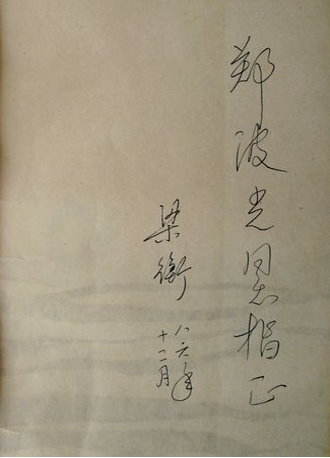 郑波光同志指正
梁衡
八六年
十二月